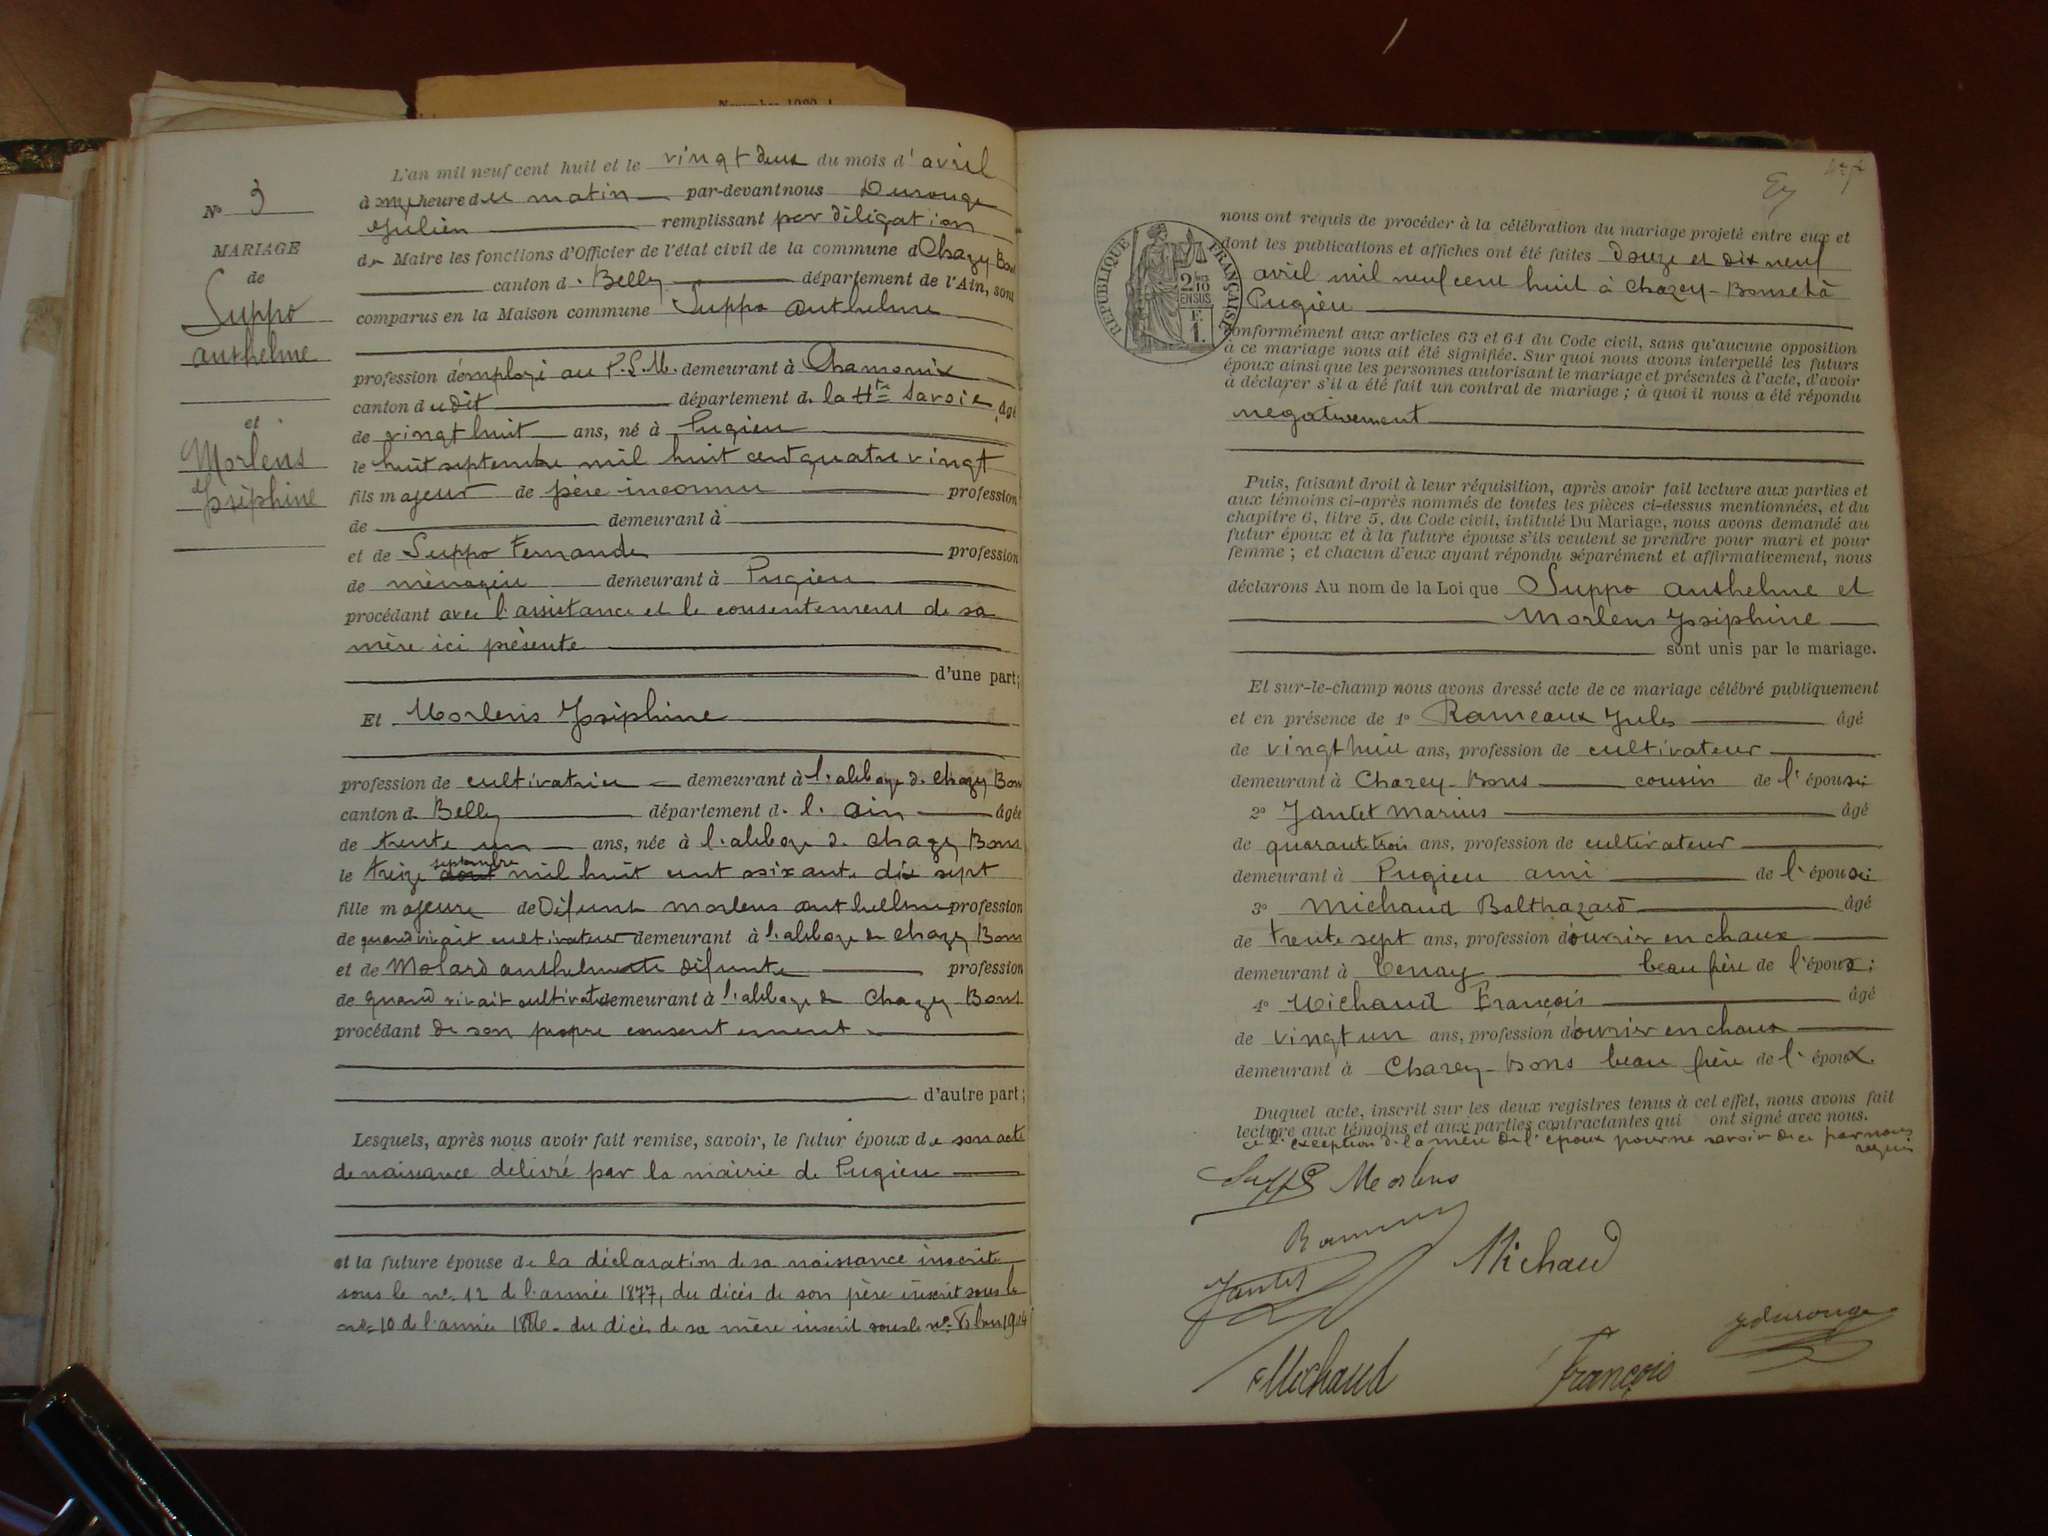 L'an mil neuf cent huit et le vingt deux du mois d'avril
à onze heure du matin par-devant nous Durouge
Julien remplissant par délégation
de Maire les fonctions d'Officier de l'état civil de la commune d Chazey Bons
canton d. Belley département de l'Ain, sont
comparus en la Maison commune Suppo anthelme
profession d'employé au P.L.M. demeurant à Chamonix
canton du dit département d. la Hte Savoie, âgé
de vingt huit ans, né à Pugieu
le huit septembre mil huit cent quatre vingt
fils majeur de père inconnu profession
de demeurant à
et de Suppo Fernande profession
de ménagère demeurant à Pugieu
procédant avec l'assistance et le consentement de sa
mère ici présente
d'une part;
Et Morlens Joséphine
profession de cultivatrice demeurant à l'abbaye d. Chazey Bons
canton d. Belley département d. l. ain âgée
de trente un ans, née à l'abbaye d. Chazey Bons
le treize août septembre mil huit cent soixante dix sept
fille majeure de Défunt Morlens anthelme profession
de quand vivait cultivateur demeurant à l'abbaye de Chazey Bons
et de Molard anthelmette défunte profession
de quand vivait demeurant à l'abbaye de Chazey Bons
procédant de son propre consentement
d'autre part;
Lesquels, après nous avoir fait remise, savoir, le futur époux de son acte
de naissance délivré par la mairie de Pugieu
et la future épouse de la déclaration de sa naissance inscrite
sous le no. 12 de l'année 1877, du décès de son père inscrit sous le
no 10 de l'année du décès de sa mère inscrit sous le no.
No 3
MARIAGE
de
Suppo
anthelme
et
Morlens
Joséphine
nous ont requis de procéder à la célébration du mariage projeté entre eux et
dont les publications et affiches ont été faites Douze et dix neuf
avril mil neuf cent huit à Chazey-Bons et à
Pugieu
conformément aux articles 63 et 64 du Code civil, sans qu'aucune opposition
à ce mariage nous ait été signifiée. Sur quoi nous avons interpellé les futurs
époux ainsi que les personnes autorisant le mariage et présentes à l'acte, d'avoir
à déclarer s'il a été fait un contrat de mariage; à quoi il nous a été répondu
négativement
Puis, faisant droit à leur réquisition, après avoir fait lecture aux parties et
aux témoins ci-après nommés de toutes les pièces ci-dessus mentionnées, et du
chapitre 6, titre 5, du Code civil, intitulé Du Mariage, nous avons demandé au
futur époux et à la future épouse s'ils veulent se prendre pour mari et pour
femme; et chacun d'eux ayant répondu séparément et affirmativement, nous
déclarons Au nom de la Loi que Suppo anthelme et
Morlens Joséphine
sont unis par le mariage.
Et sur-le-champ nous avons dressé acte de ce mariage célébré publiquement
et en présence de 1° Rameaux Jules âgé
de vingt huit ans, profession de cultivateur
demeurant à Chazey-Bons cousin de l'épouse
2° Jantet Marius âgé
de quarante trois ans, profession de cultivateur
demeurant à Pugieu ami de l'épouse
3° Michaud Balthazard âgé
de trente sept ans, profession d'ouvrier en chaux
demeurant à Tenay beau frère de l'époux;
4° Michaud François âgé
de vingt un ans, profession d'ouvrier en chaux
demeurant à Chazey-Bons beau frère de l'époux.
Duquel acte, inscrit sur les deux registres tenus à cet effet, nous avons fait
lecture aux témoins et aux parties contractantes qui ont signé avec nous.
à l'exception de la mère de l'époux pour ne savoir de ce par nous
requis
Suppo Morlens
Jantet
Michaud
Michaud François
jdurouge
RÉPUBLIQUE FRANÇAISE
2/10
EN SUS
1F.